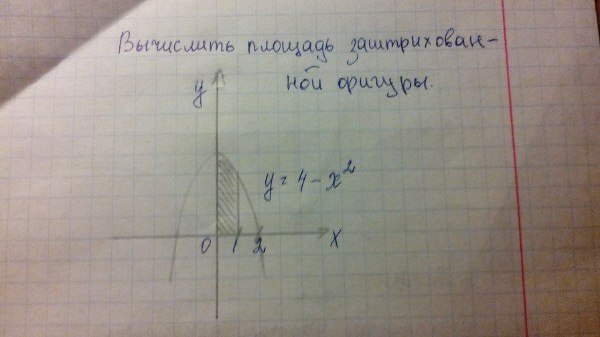 Вычислить площадь заштрихован-
ной фигуры.
y
y = 4 - x²
0 1 2 x